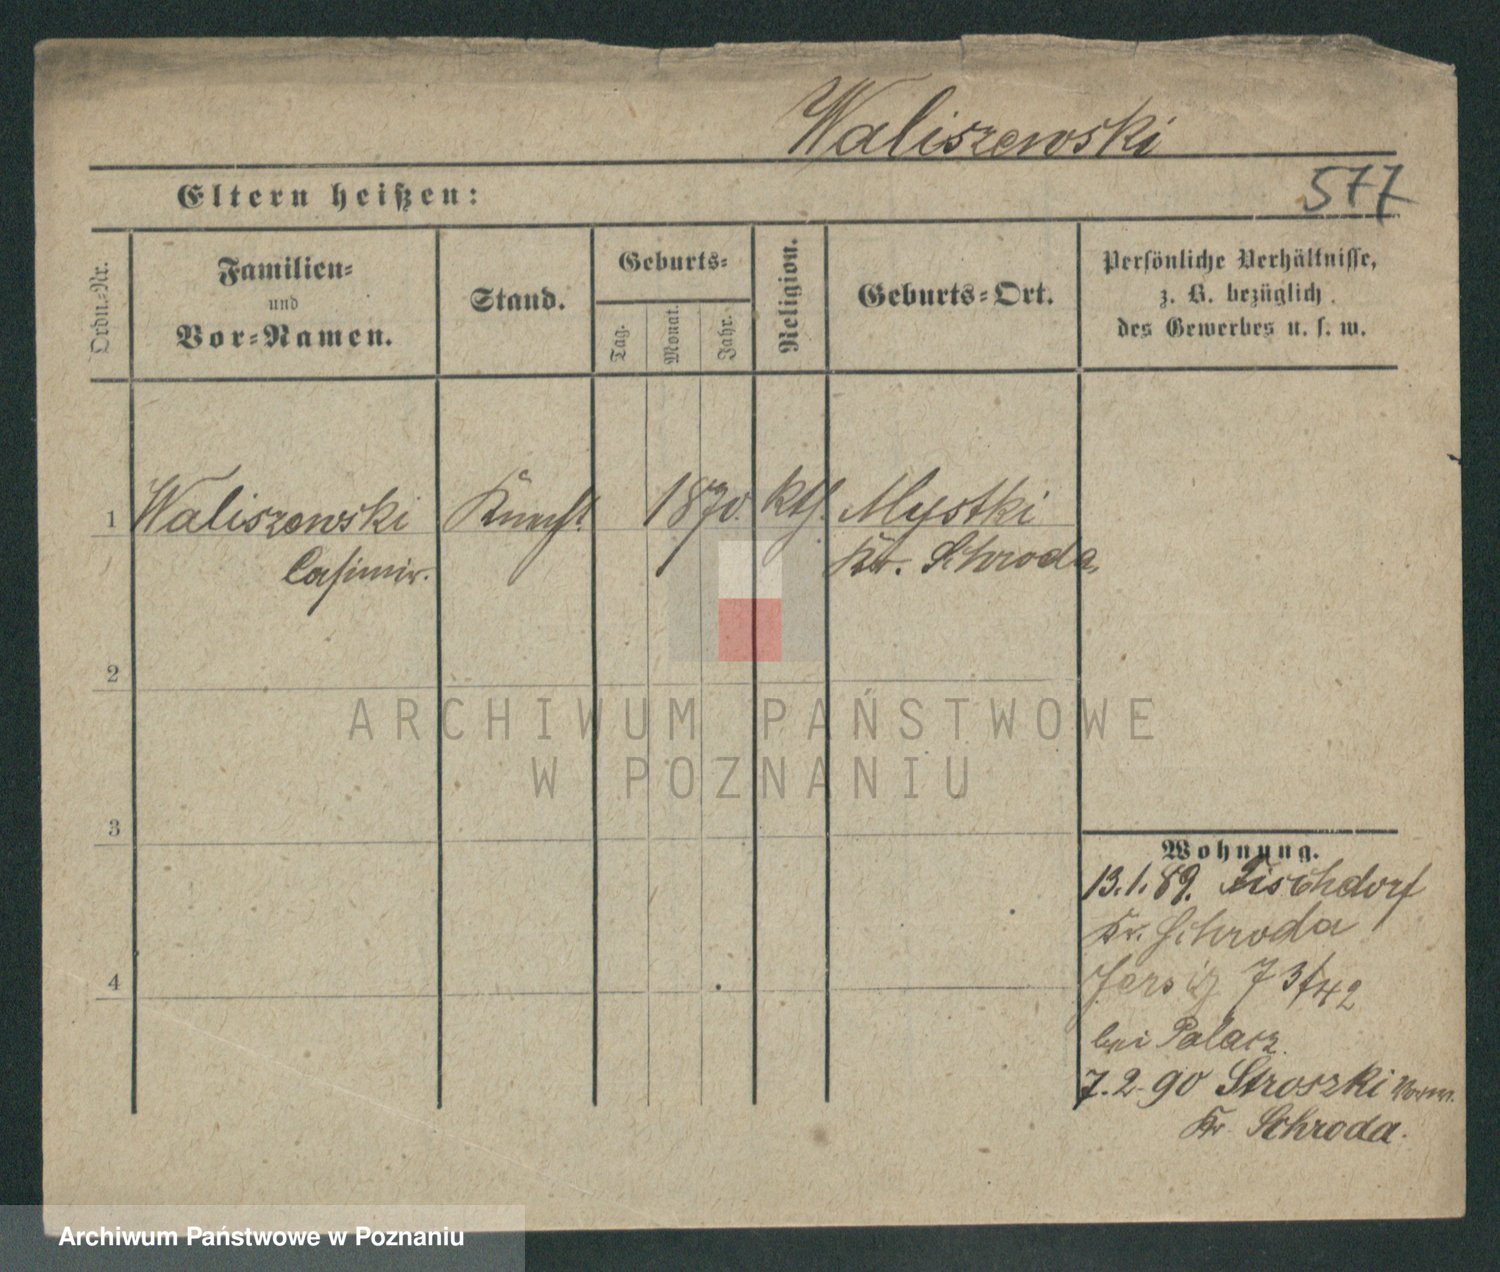 Waliszewski
577
Eltern heißen:
Ordn.-Nr.
Familien-
und
Vor-Namen.
Stand.
Geburts-
Tag.
Monat.
Jahr.
Religion.
Geburts-Ort.
Persönliche Verhältnisse,
z. B. bezüglich
des Gewerbes u. s. w.
1 Waliszewski Knecht 1870. kth. Mystki
Casimir. Kr. Schroda
2
3
4
Wohnung.
13.1.89. Tischdorf
Kr. Schroda
Jersitz 73/42
bei Palacz
7.2.90 Stroszki
Kr. Schroda.
ARCHIWUM PAŃSTWOWE
W POZNANIU
Archiwum Państwowe w Poznaniu